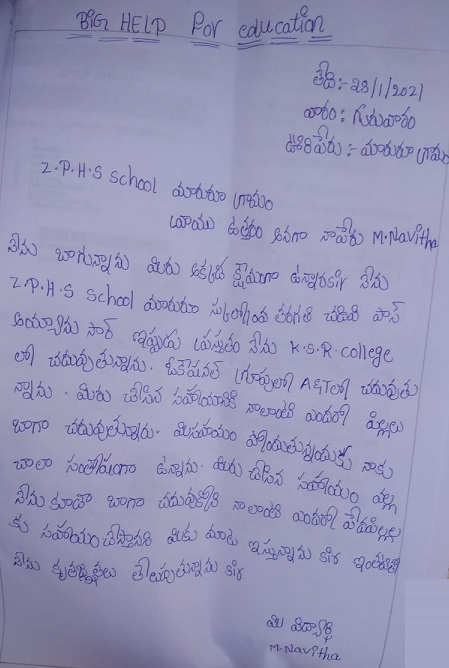 BIG HELP For education
తేది:- 28/1/2021
వారం: గురువారం
ఊరిపేరు:- మారూరు గ్రామం
Z.P.H.S school మారూరు గ్రామం
వ్రాయు ఉత్తరం అనగా నాపేరు M.Navitha
నేను బాగున్నాను మీరు అక్కడ క్షేమంగా ఉన్నారsir నేను
Z.P.H.S school మారూరు స్కూల్లోపది తరగతి చదివి పాస్
అయ్యాను సార్ ఇప్పుడు ప్రస్తుతం నేను K.S.R. college
లో చదువుతున్నాను. ఒకేషనల్ గ్రూపులో A&Tలో చదువుతు
న్నాను. మీరు చేసిన సహాయానికి నాలాంటి ఎందరో పిల్లలు
బాగా చదువుతున్నారు. మీసహాయం పొందుతున్నందుకు నాకు
చాలా సంతోషంగా ఉన్నాను. మీరు చేసిన సహాయం వల్ల
నేను కూడా బాగా చదువుకొని నాలాంటి ఎందరో పేదపిల్లల
కు సహాయం చేస్తానని మీకు మాట ఇస్తున్నాను sir ఇంతటితో
నేను కృతజ్ఞతలు తెలుపుతున్నాను sir
మీ విద్యార్థి
M.Navitha